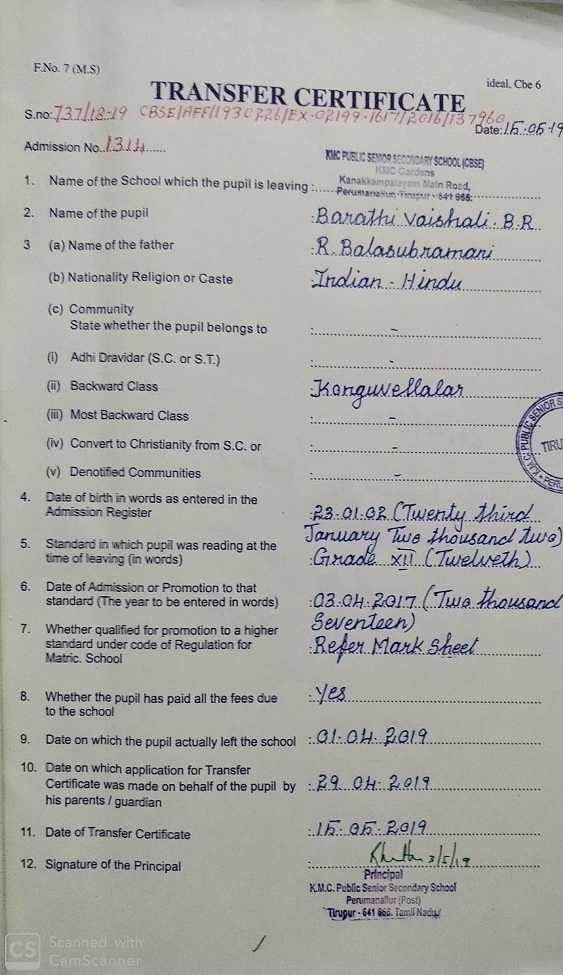 F.No. 7 (M.S)
ideal, Cbe 6
TRANSFER CERTIFICATE
S.no: 737/18-19 CBSE/AFF/1930226/EX-02199-1617/2016/137960
Date: 15.05.19
Admission No. 1314
KMC PUBLIC SENIOR SECONDARY SCHOOL (CBSE)
KMC Gardens
1. Name of the School which the pupil is leaving : Kanakkampalayam Main Road,
Perumanallur, Tirupur - 641 666.
2. Name of the pupil : Barathi Vaishali. B.R
3 (a) Name of the father : R. Balasubramani
(b) Nationality Religion or Caste : Indian - Hindu
(c) Community
State whether the pupil belongs to : -
(i) Adhi Dravidar (S.C. or S.T.) : -
(ii) Backward Class Konguvellalar
(iii) Most Backward Class : -
(iv) Convert to Christianity from S.C. or : -
(v) Denotified Communities : -
4. Date of birth in words as entered in the
Admission Register : 23.01.02 (Twenty third
January Two thousand two)
5. Standard in which pupil was reading at the
time of leaving (in words) : Grade XII (Twelveth)
6. Date of Admission or Promotion to that
standard (The year to be entered in words) : 03.04.2017 (Two thousand
Seventeen)
7. Whether qualified for promotion to a higher
standard under code of Regulation for : Refer Mark Sheet
Matric. School
8. Whether the pupil has paid all the fees due : Yes
to the school
9. Date on which the pupil actually left the school : 01.04.2019
10. Date on which application for Transfer
Certificate was made on behalf of the pupil by : 29.04.2019
his parents / guardian
11. Date of Transfer Certificate : 15.05.2019
12. Signature of the Principal : 3/5/19
Principal
K.M.C. Public Senior Secondary School
Perumanallur (Post)
Tirupur - 641 666. Tamil Nadu
K.M.C. PUBLIC SENIOR
TIRU
CS Scanned with
CamScanner